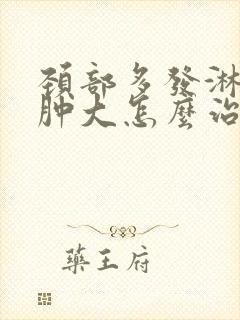 頸部多發淋
肿大怎麼治
藥王府